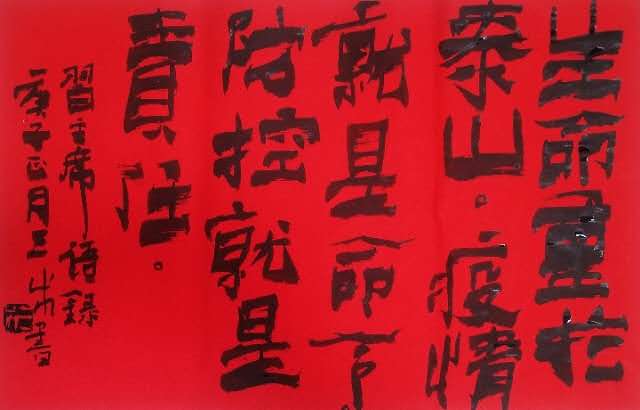 生命重於
泰山。疫情
就是命令
防控就是
責任。
習主席語録
庚子正月三书